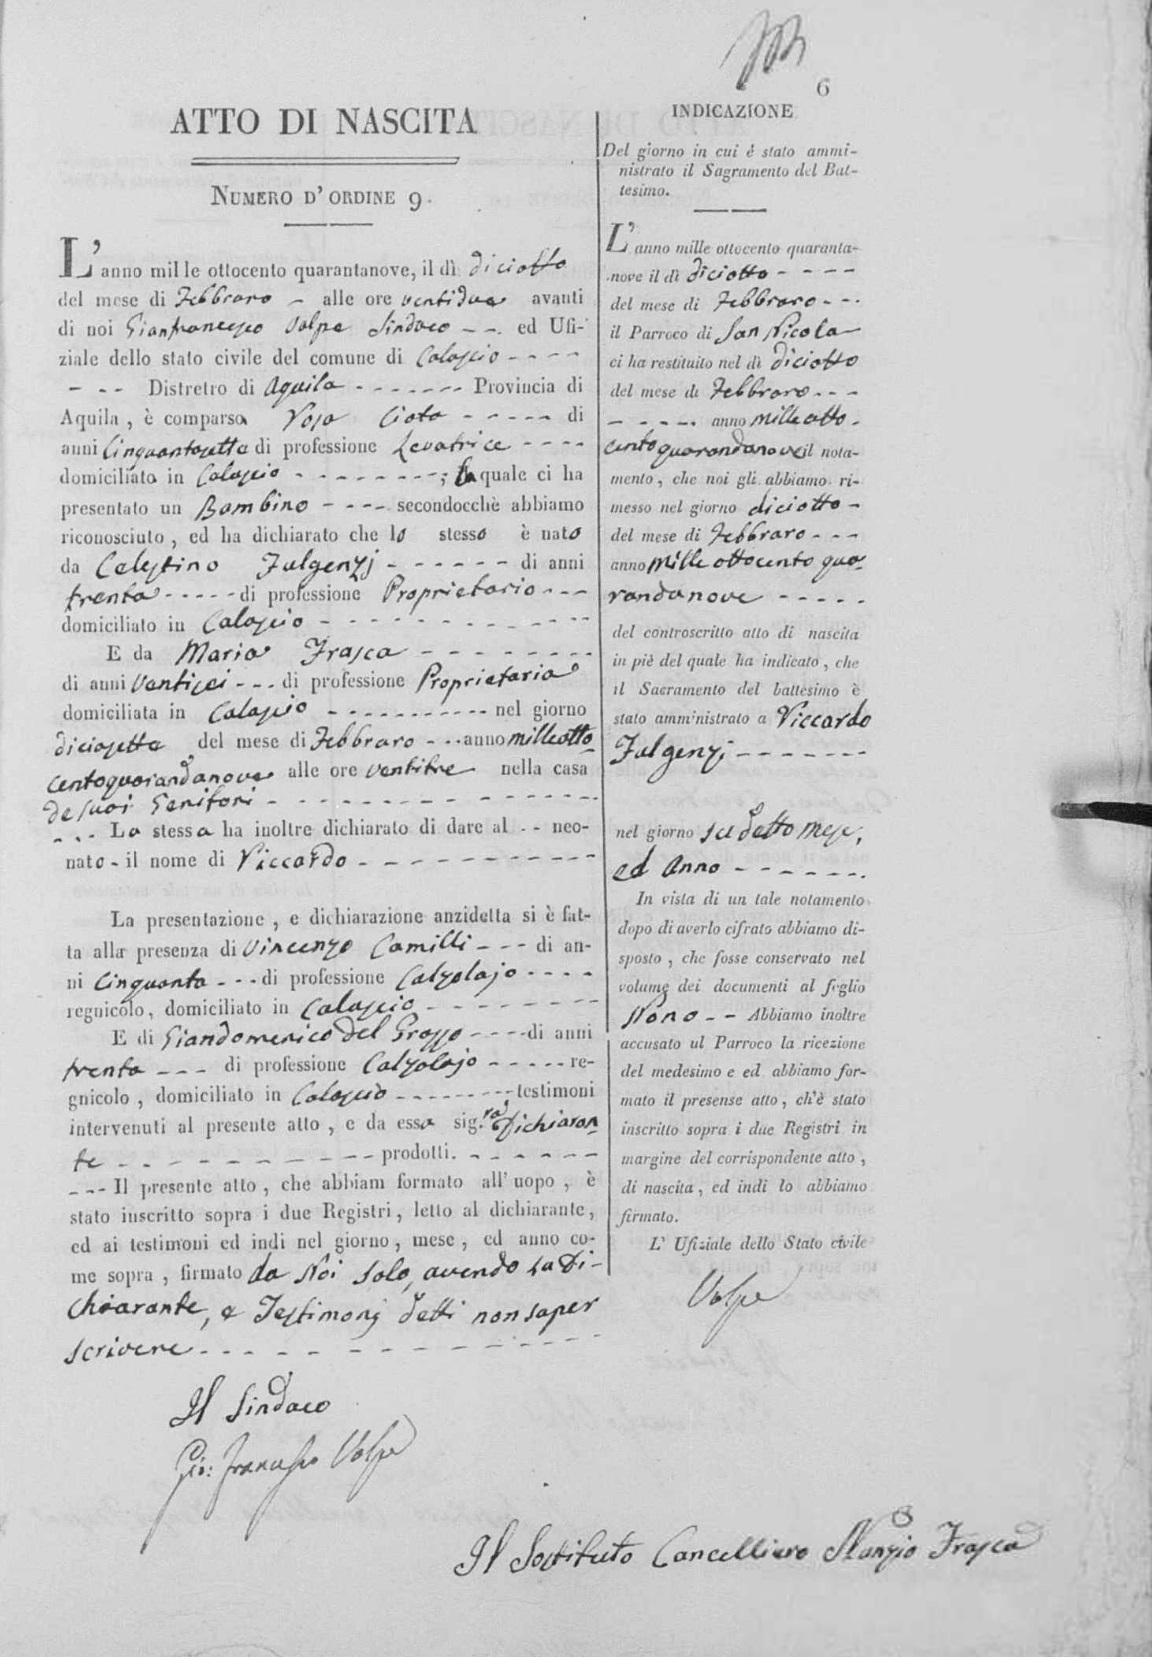 6
ATTO DI NASCITA
NUMERO D' ORDINE 9.
L' anno mille ottocento quarantanove, il dì diciotto
del mese di Febbraro - alle ore ventidue avanti
di noi Gianfrancesco Volpe Sindaco - - . ed Ufi-
ziale dello stato civile del comune di Calascio - - - -
- - - Distretro di Aquila - - - - - - - Provincia di
Aquila, è comparsa Rosa Ciota - - - - - di
anni Cinquantasette di professione Levatrice - - - -
domiciliata in Calascio - - - - - - - - ; la quale ci ha
presentato un Bambino - - - - secondocchè abbiamo
riconosciuto, ed ha dichiarato che lo stesso è nato
da Celestino Fulgenzj - - - - - - di anni
trenta - - - - - di professione Proprietario - - -
domiciliato in Calascio - - - - - - - - - - - -
E da Maria Frasca - - - - - - - -
di anni Ventisei - - - di professione Proprietaria
domiciliata in Calascio - - - - - - - - - - - nel giorno
diciasette del mese di Febbraro - - - anno milleotto
centoquarandanove alle ore ventitre nella casa
de suoi Genitori - - - - - - - - - - - - -
- - - La stessa ha inoltre dichiarato di dare al - - neo-
nato - il nome di Riccardo - - - - - - - - - - -
La presentazione, e dichiarazione anzidetta si è fat-
ta alla presenza di Vincenzo Camilli - - - di an-
ni Cinquanta - - - di professione Calzolajo - - - -
regnicolo, domiciliato in Calascio - - - - - - - -
E di Giandomenico Del Grosso - - - - di anni
trenta - - - di professione Calzolajo - - - - - re-
gnicolo, domiciliato in Calascio - - - - - - - - testimoni
intervenuti al presente atto, e da essa sig.ra Dichiaran
te - - - - - - - - - - - prodotti. - - - - - -
- - - Il presente atto, che abbiam formato all' uopo, è
stato inscritto sopra i due Registri, letto al dichiarante,
ed ai testimoni ed indi nel giorno, mese, ed anno co-
me sopra, firmato da Noi solo, avendo La Di-
chiarante, e Testimonj detti non saper
scrivere - - - - - - - - - - - - -
Il Sindaco
Gio: Francesco Volpe
INDICAZIONE
Del giorno in cui è stato ammi-
nistrato il Sagramento del Bat-
tesimo.
L' anno mille ottocento quaranta-
nove il dì diciotto - - - -
del mese di Febbraro - - -
il Parroco di San Nicola -
ci ha restituito nel dì diciotto
del mese di Febbraro - - -
- - - - - anno mille otto -
cento quarandanove il nota-
mento, che noi gli abbiamo ri-
messo nel giorno diciotto -
del mese di Febbraro - - -
anno mille ottocento qua-
randanove - - - - -
del controscritto atto di nascita
in piè del quale ha indicato, che
il Sacramento del battesimo è
stato amministrato a Riccardo
Fulgenzj - - - - - - -
nel giorno sudetto mese,
ed Anno - - - - - - .
In vista di un tale notamento
dopo di averlo cifrato abbiamo di-
sposto, che fosse conservato nel
volume dei documenti al foglio
Nono - - Abbiamo inoltre
accusato al Parroco la ricezione
del medesimo e ed abbiamo for-
mato il presense atto, ch'è stato
inscritto sopra i due Registri in
margine del corrispondente atto,
di nascita, ed indi lo abbiamo
firmato.
L' Ufiziale dello Stato civile
Volpe
Il Sostituto Cancelliere Nunzio Frasca